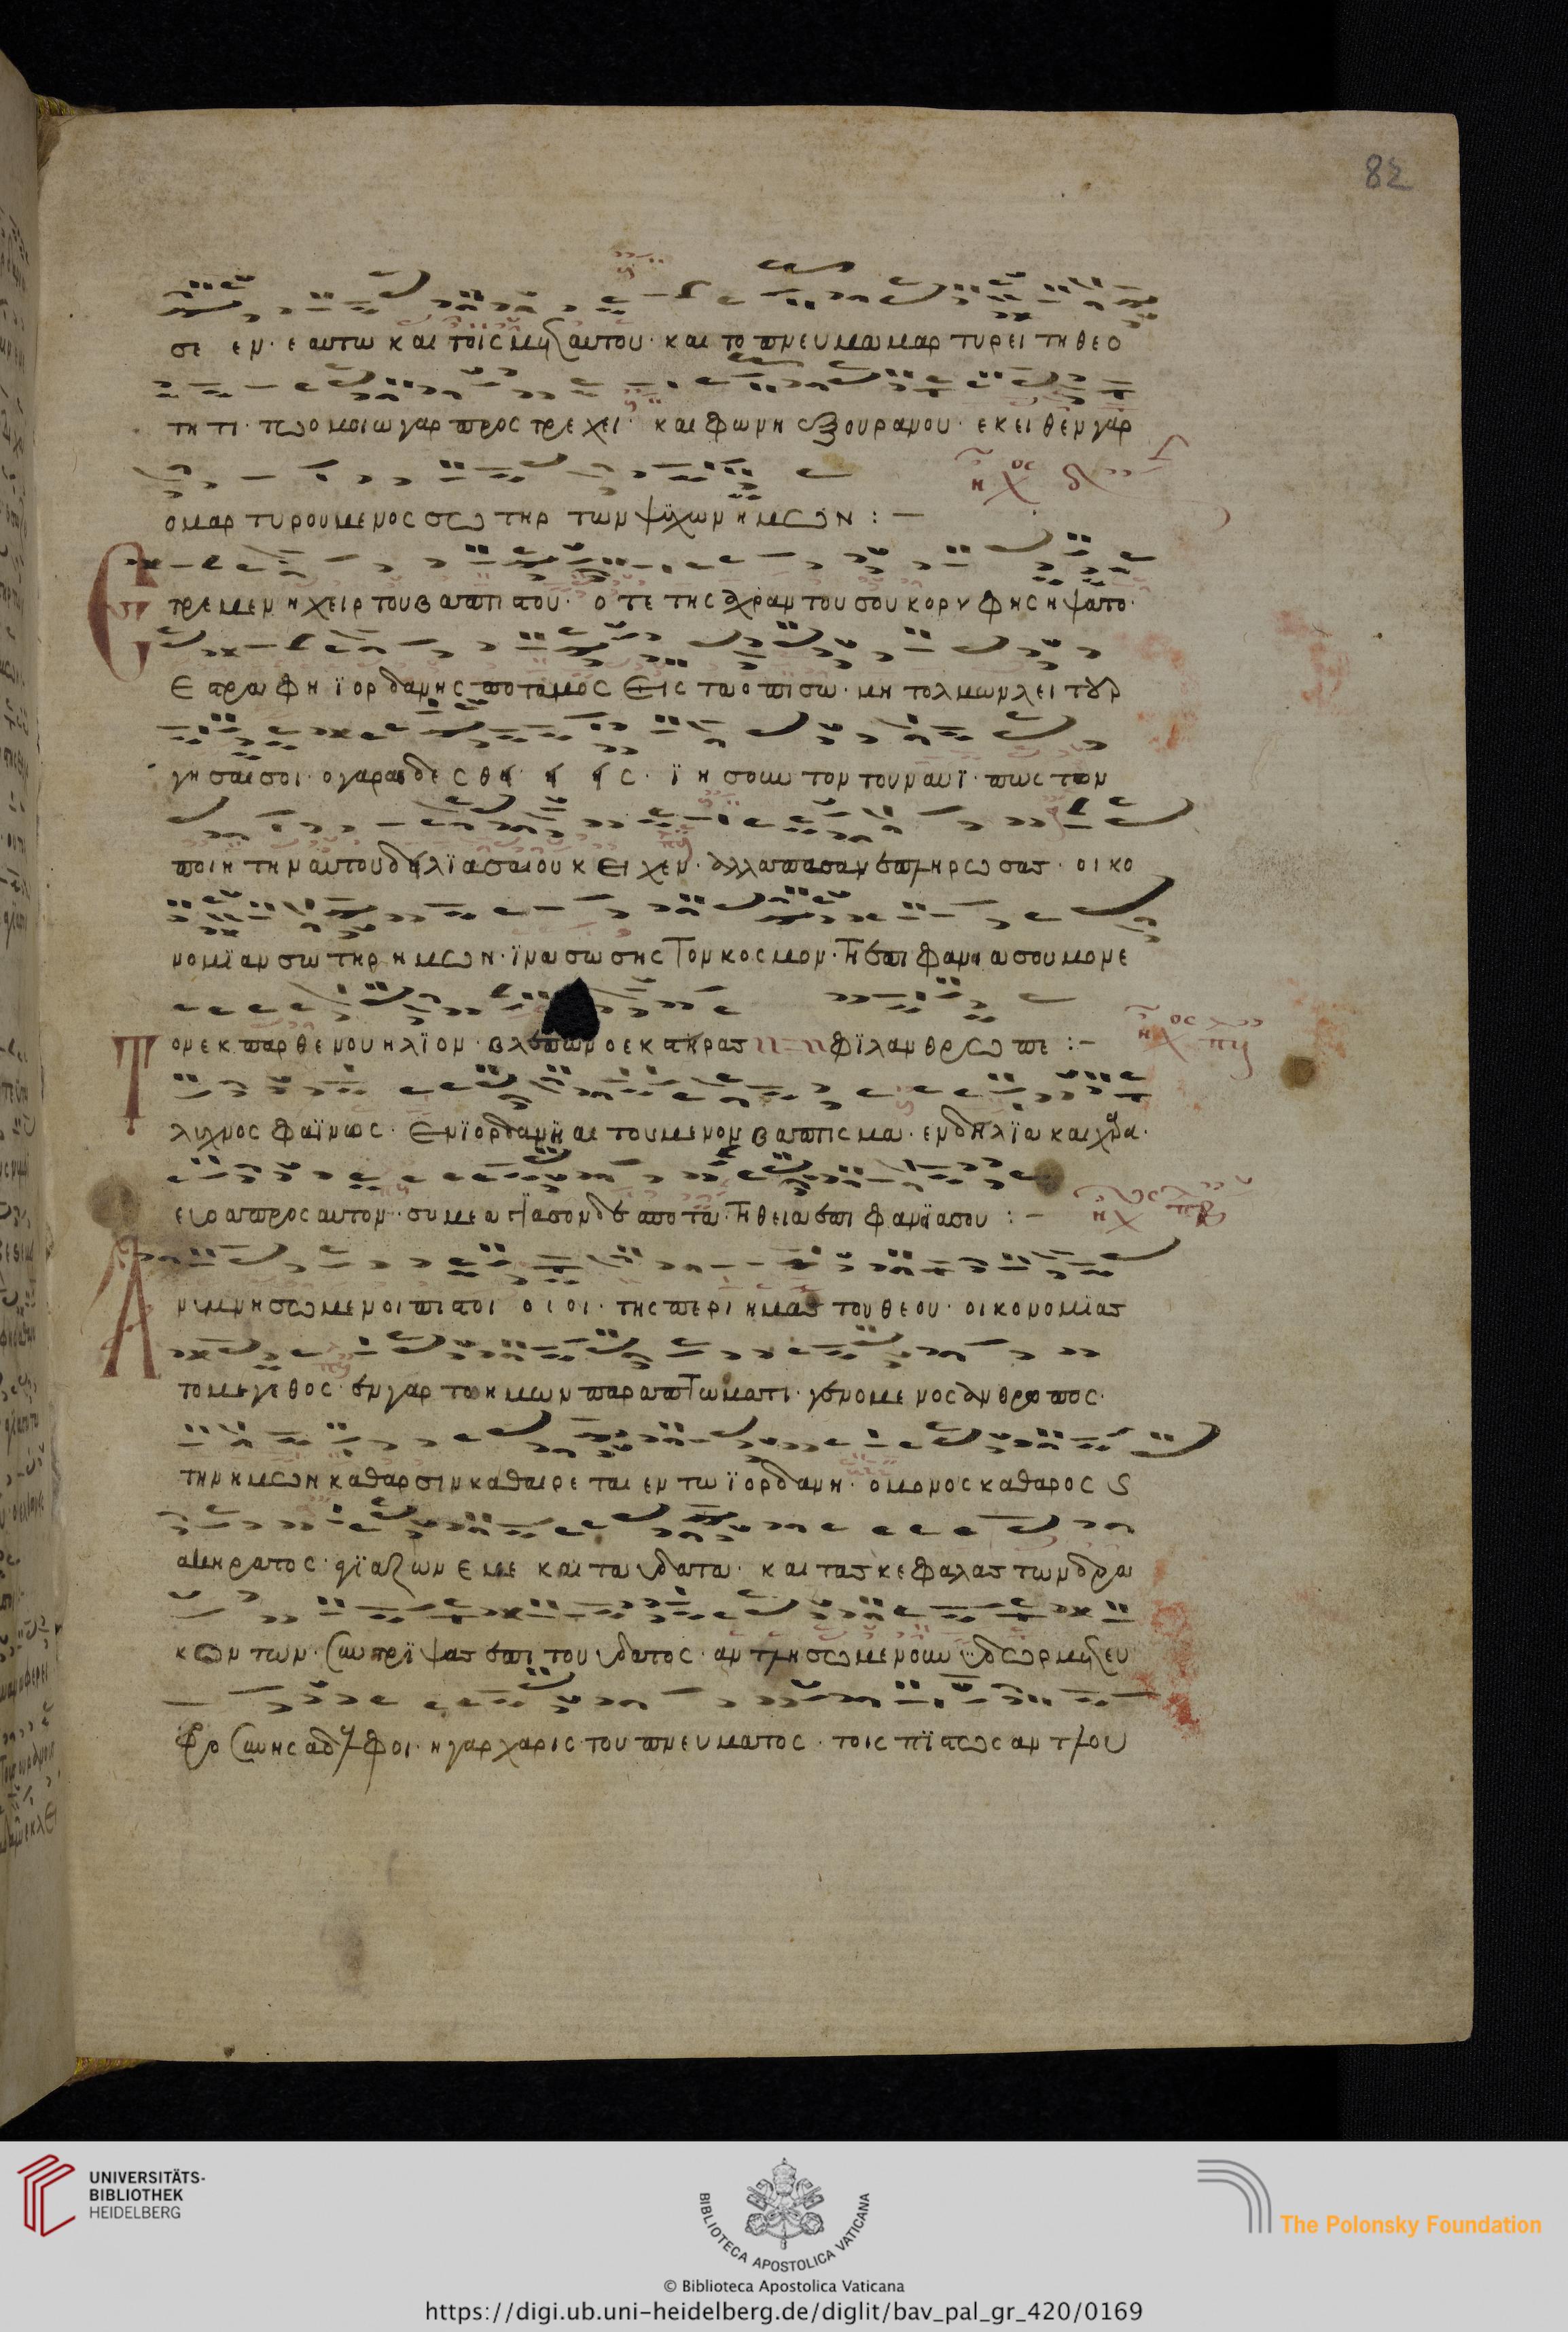 82
σε εν· εαυτω και τοις μεθ αυτου· και το πνευμα μαρτυρει τη θεο
τητι· τω ομοιω γαρ προςτρεχει· και φωνη εξ ουρανου· εκειθεν γαρ
ο μαρτυρουμενος σωτηρ των ψυχων ημων :—
Ετρεμεν η χειρ του βαπτιστου· οτε της αχραντου σου κορυφης ηψατο·
εστραφη ϊορδανης ποταμος εις τα οπισω· μη τολμων λειτουρ
γησαι σοι· ο γαρ αιδεσθεις ϊησουν τον του ναυϊ· πως τον
ποιητην αυτου δειλϊασαι ουκ ειχεν· αλλα πασαν επληρωσας· οικο
νομϊαν σωτηρ ημων· ϊνα σωσης τον κοσμον· τη επιφανεια σου μονε
Τον εκ παρθενου ηλϊον· βλεπων ο εκ στειρας φϊλανθρωπε :—
λυχνος φαϊνος· εν ϊορδανη αιτουμενον βαπτισμα· εν δειλϊα και χαρα·
εβοα προς αυτον· συ με αγϊασον δεσποτα· τη θεια επιφανεϊα σου :—
Αν υμνησωμεν οι πιστοι οι οι· της περι ημας του θεου· οικονομϊας
το μεγεθος· εν γαρ τω ημων παραπτωματι· γενομενος ανθρωπος·
την ημων καθαρσιν καθαιρεται εν τω ϊορδανη· ο μονος καθαρος
ακηρατος· αγϊαζων εμε και τα υδατα· και τας κεφαλας των δρα
κοντων· συντρϊψας επι του υδατος· αντλησωμεν ουν ϋδωρ μετ ευ
φροσυνης αδελφοι· η γαρ χαρις του πνευματος· τοις πϊστως αντλου
UNIVERSITÄTS-
BIBLIOTHEK
HEIDELBERG
BIBLIOTECA APOSTOLICA VATICANA
The Polonsky Foundation
© Biblioteca Apostolica Vaticana
https://digi.ub.uni-heidelberg.de/diglit/bav_pal_gr_420/0169